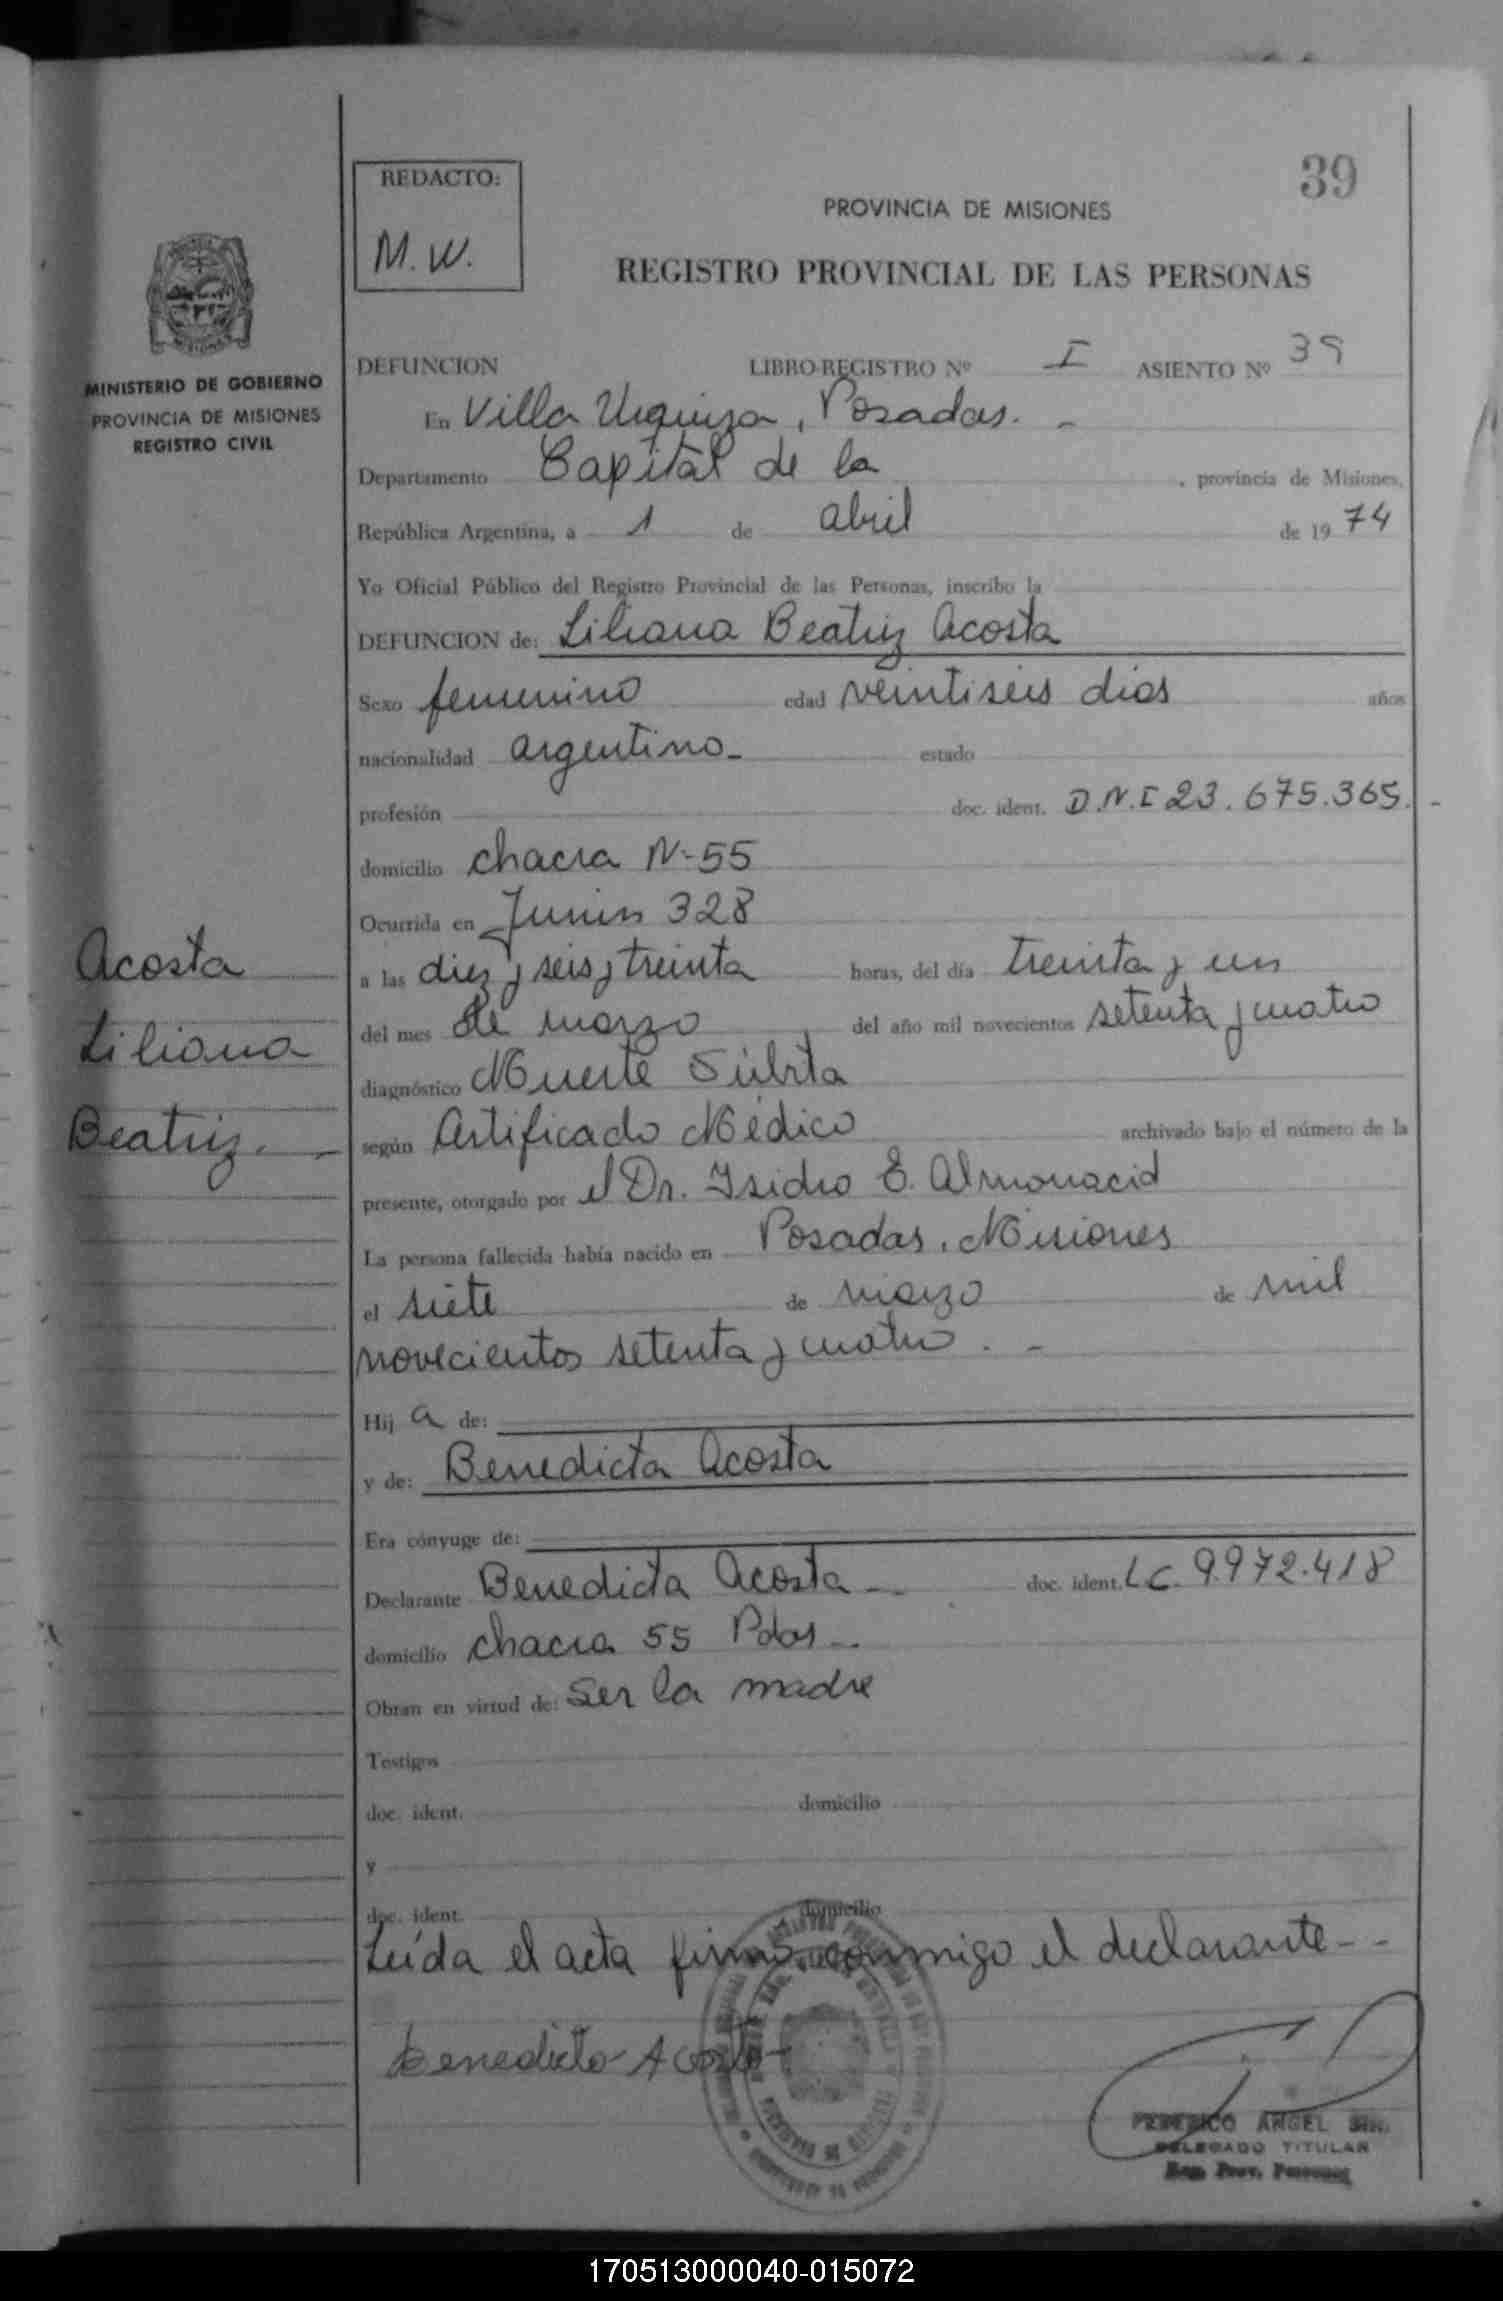 39
REDACTO:
M. W.
PROVINCIA DE MISIONES
REGISTRO PROVINCIAL DE LAS PERSONAS
MINISTERIO DE GOBIERNO
PROVINCIA DE MISIONES
REGISTRO CIVIL
DEFUNCION LIBRO-REGISTRO Nº I ASIENTO Nº 39
En Villa Urquiza, Posadas. -
Departamento Capital de la , provincia de Misiones,
República Argentina, a 1 de abril de 1974
Yo Oficial Público del Registro Provincial de las Personas, inscribo la
DEFUNCION de: Liliana Beatriz Acosta
Sexo femenino edad veintiseis dias años
nacionalidad argentina - estado
profesión doc. ident. D.N.I 23.675.365. -
domicilio chacra N-55
Ocurrida en Junin 328
a las diez y seis y treinta horas, del día treinta y un
del mes de marzo del año mil novecientos setenta y cuatro
diagnóstico Muerte Súbita
según Certificado Médico archivado bajo el número de la
presente, otorgado por el Dr. Isidro E. Almonacid
La persona fallecida había nacido en Posadas, Misiones
el siete de marzo de mil
novecientos setenta y cuatro. -
Hija de:
y de: Benedicta Acosta
Era cónyuge de:
Declarante Benedicta Acosta - doc. ident. LC. 9.972.418
domicilio chacra 55 Pdas -.
Obran en virtud de: Ser la madre
Testigos
doc. ident. domicilio
y
doc. ident. domicilio
Leída el acta firma conmigo el declarante - -
Benedicta Acosta
Acosta
Liliana
Beatriz. -
FEDERICO ANGEL
DELEGADO TITULAR
Reg. Prov. Personas
170513000040-015072